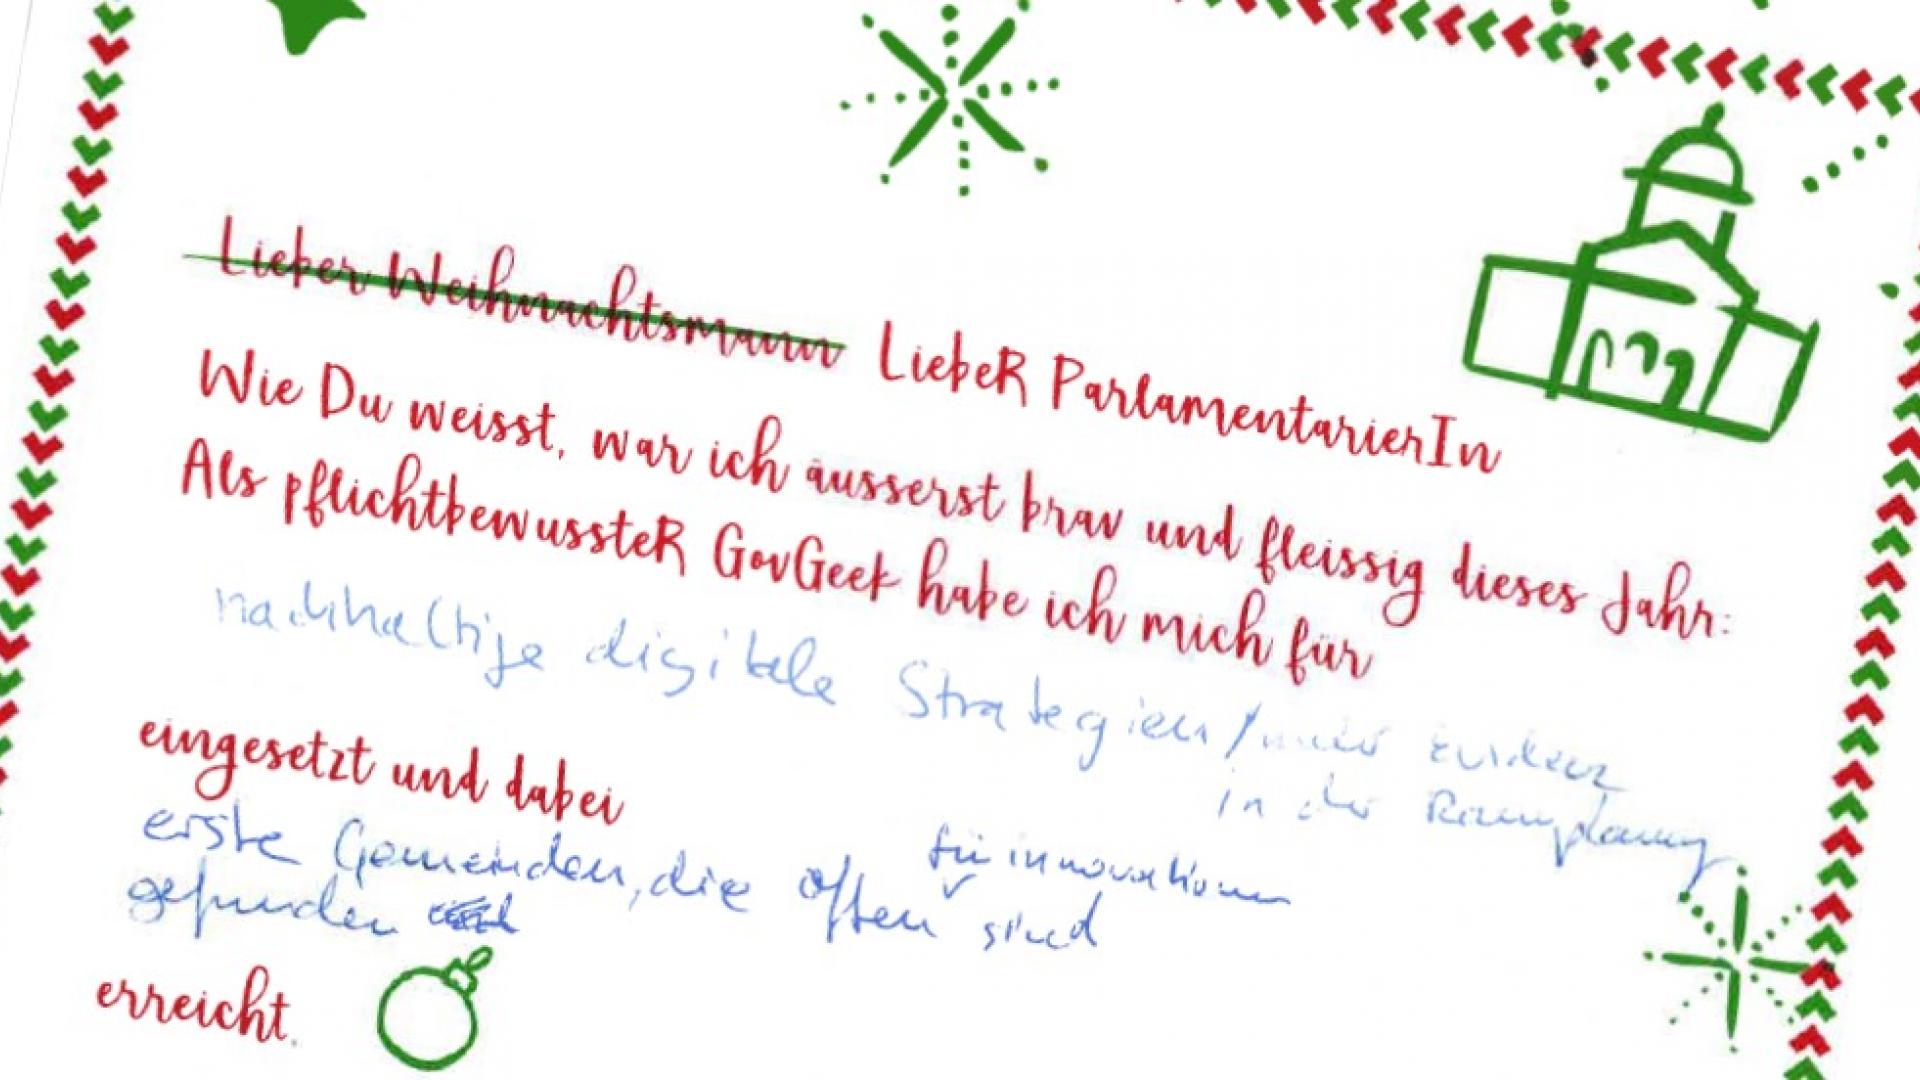 Lieber Weihnachtsmann LiebeR ParlamentarierIn
Wie Du weisst, war ich äusserst brav und fleissig dieses Jahr:
Als pflichtbewussteR GovGeek habe ich mich für
nachhaltige digitale Strategien / mehr Evidenz
in der Raumplanung
eingesetzt und dabei
für Innovationen
erste Gemeinden, die offen sind
gefunden
erreicht.